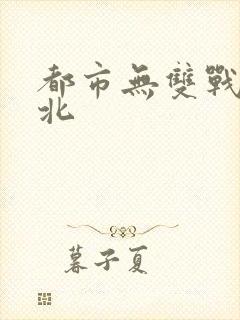 都市無雙戰
北
暮子夏